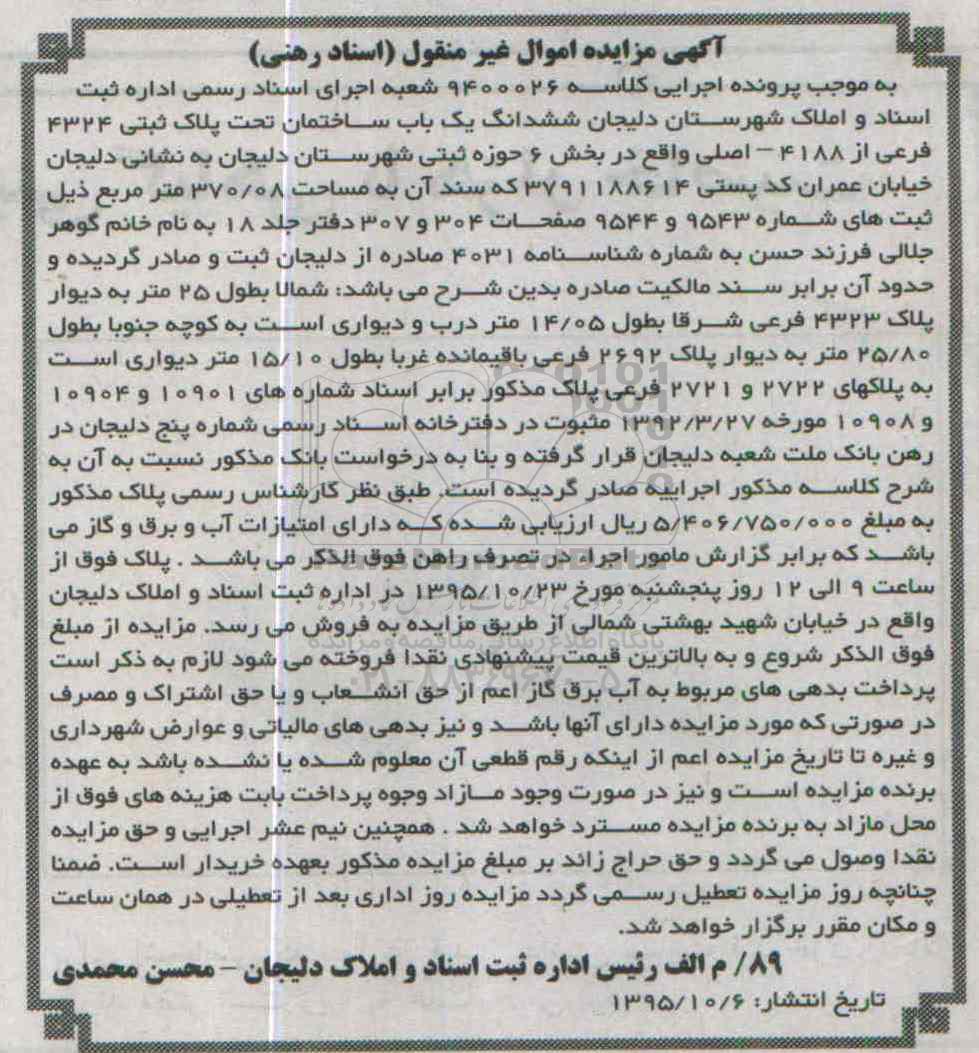 آگهی مزایده اموال غیر منقول (اسناد رهنی)
به موجب پرونده اجرایی کلاسه ۹۴۰۰۰۲۶ شعبه اجرای اسناد رسمی اداره ثبت
اسناد و املاک شهرستان دلیجان ششدانگ یک باب ساختمان تحت پلاک ثبتی ۴۳۲۴
فرعی از ۴۱۸۸ – اصلی واقع در بخش ۶ حوزه ثبتی شهرستان دلیجان به نشانی دلیجان
خیابان عمران کد پستی ۳۷۹۱۱۸۸۶۱۴ که سند آن به مساحت ۳۷۰/۰۸ متر مربع ذیل
ثبت های شماره ۹۵۴۳ و ۹۵۴۴ صفحات ۳۰۴ و ۳۰۷ دفتر جلد ۱۸ به نام خانم گوهر
جلالی فرزند حسن به شماره شناسنامه ۴۰۳۱ صادره از دلیجان ثبت و صادر گردیده و
حدود آن برابر سند مالکیت صادره بدین شرح می باشد: شمالا بطول ۲۵ متر به دیوار
پلاک ۴۳۲۳ فرعی شرقا بطول ۱۴/۰۵ متر درب و دیواری است به کوچه جنوبا بطول
۲۵/۸۰ متر به دیوار پلاک ۲۶۹۲ فرعی باقیمانده غربا بطول ۱۵/۱۰ متر دیواری است
به پلاکهای ۲۷۲۲ و ۲۷۲۱ فرعی پلاک مذکور برابر اسناد شماره های ۱۰۹۰۱ و ۱۰۹۰۴
و ۱۰۹۰۸ مورخه ۱۳۹۲/۳/۲۷ مثبوت در دفترخانه اسناد رسمی شماره پنج دلیجان در
رهن بانک ملت شعبه دلیجان قرار گرفته و بنا به درخواست بانک مذکور نسبت به آن به
شرح کلاسه مذکور اجراییه صادر گردیده است. طبق نظر کارشناس رسمی پلاک مذکور
به مبلغ ۵/۴۰۶/۷۵۰/۰۰۰ ریال ارزیابی شده که دارای امتیازات آب و برق و گاز می
باشد که برابر گزارش مامور اجرا، در تصرف راهن فوق الذکر می باشد . پلاک فوق از
ساعت ۹ الی ۱۲ روز پنجشنبه مورخ ۱۳۹۵/۱۰/۲۳ در اداره ثبت اسناد و املاک دلیجان
واقع در خیابان شهید بهشتی شمالی از طریق مزایده به فروش می رسد. مزایده از مبلغ
فوق الذکر شروع و به بالاترین قیمت پیشنهادی نقدا فروخته می شود لازم به ذکر است
پرداخت بدهی های مربوط به آب برق گاز اعم از حق انشعاب و یا حق اشتراک و مصرف
در صورتی که مورد مزایده دارای آنها باشد و نیز بدهی های مالیاتی و عوارض شهرداری
و غیره تا تاریخ مزایده اعم از اینکه رقم قطعی آن معلوم شده یا نشده باشد به عهده
برنده مزایده است و نیز در صورت وجود مازاد وجوه پرداخت بابت هزینه های فوق از
محل مازاد به برنده مزایده مسترد خواهد شد . همچنین نیم عشر اجرایی و حق مزایده
نقدا وصول می گردد و حق حراج زائد بر مبلغ مزایده مذکور بعهده خریدار است. ضمنا
چنانچه روز مزایده تعطیل رسمی گردد مزایده روز اداری بعد از تعطیلی در همان ساعت
و مکان مقرر برگزار خواهد شد.
۸۹/ م الف رئیس اداره ثبت اسناد و املاک دلیجان – محسن محمدی
تاریخ انتشار: ۱۳۹۵/۱۰/۶